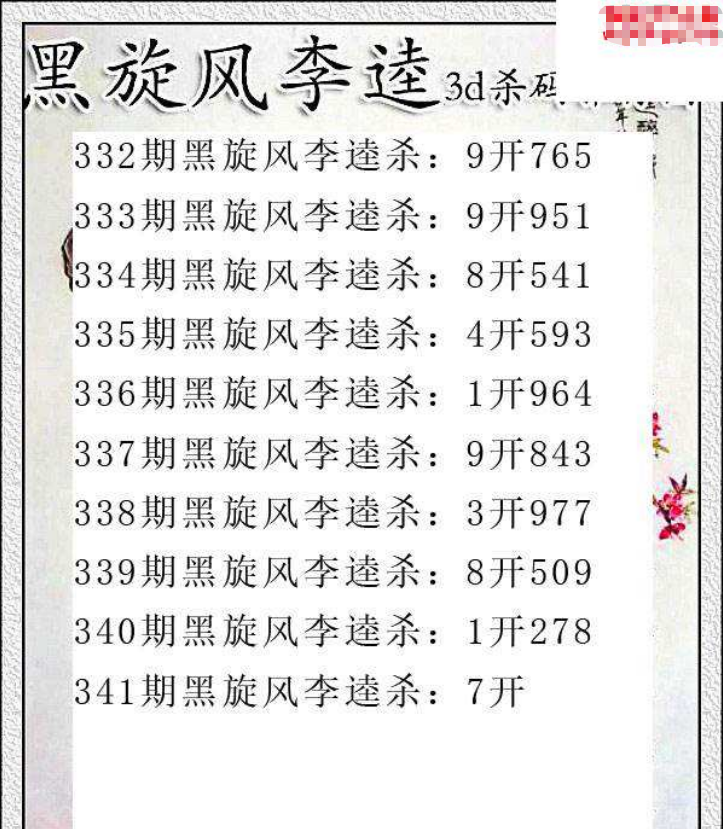 黑旋风李逵3d杀码
332期黑旋风李逵杀：9开765
333期黑旋风李逵杀：9开951
334期黑旋风李逵杀：8开541
335期黑旋风李逵杀：4开593
336期黑旋风李逵杀：1开964
337期黑旋风李逵杀：9开843
338期黑旋风李逵杀：3开977
339期黑旋风李逵杀：8开509
340期黑旋风李逵杀：1开278
341期黑旋风李逵杀：7开